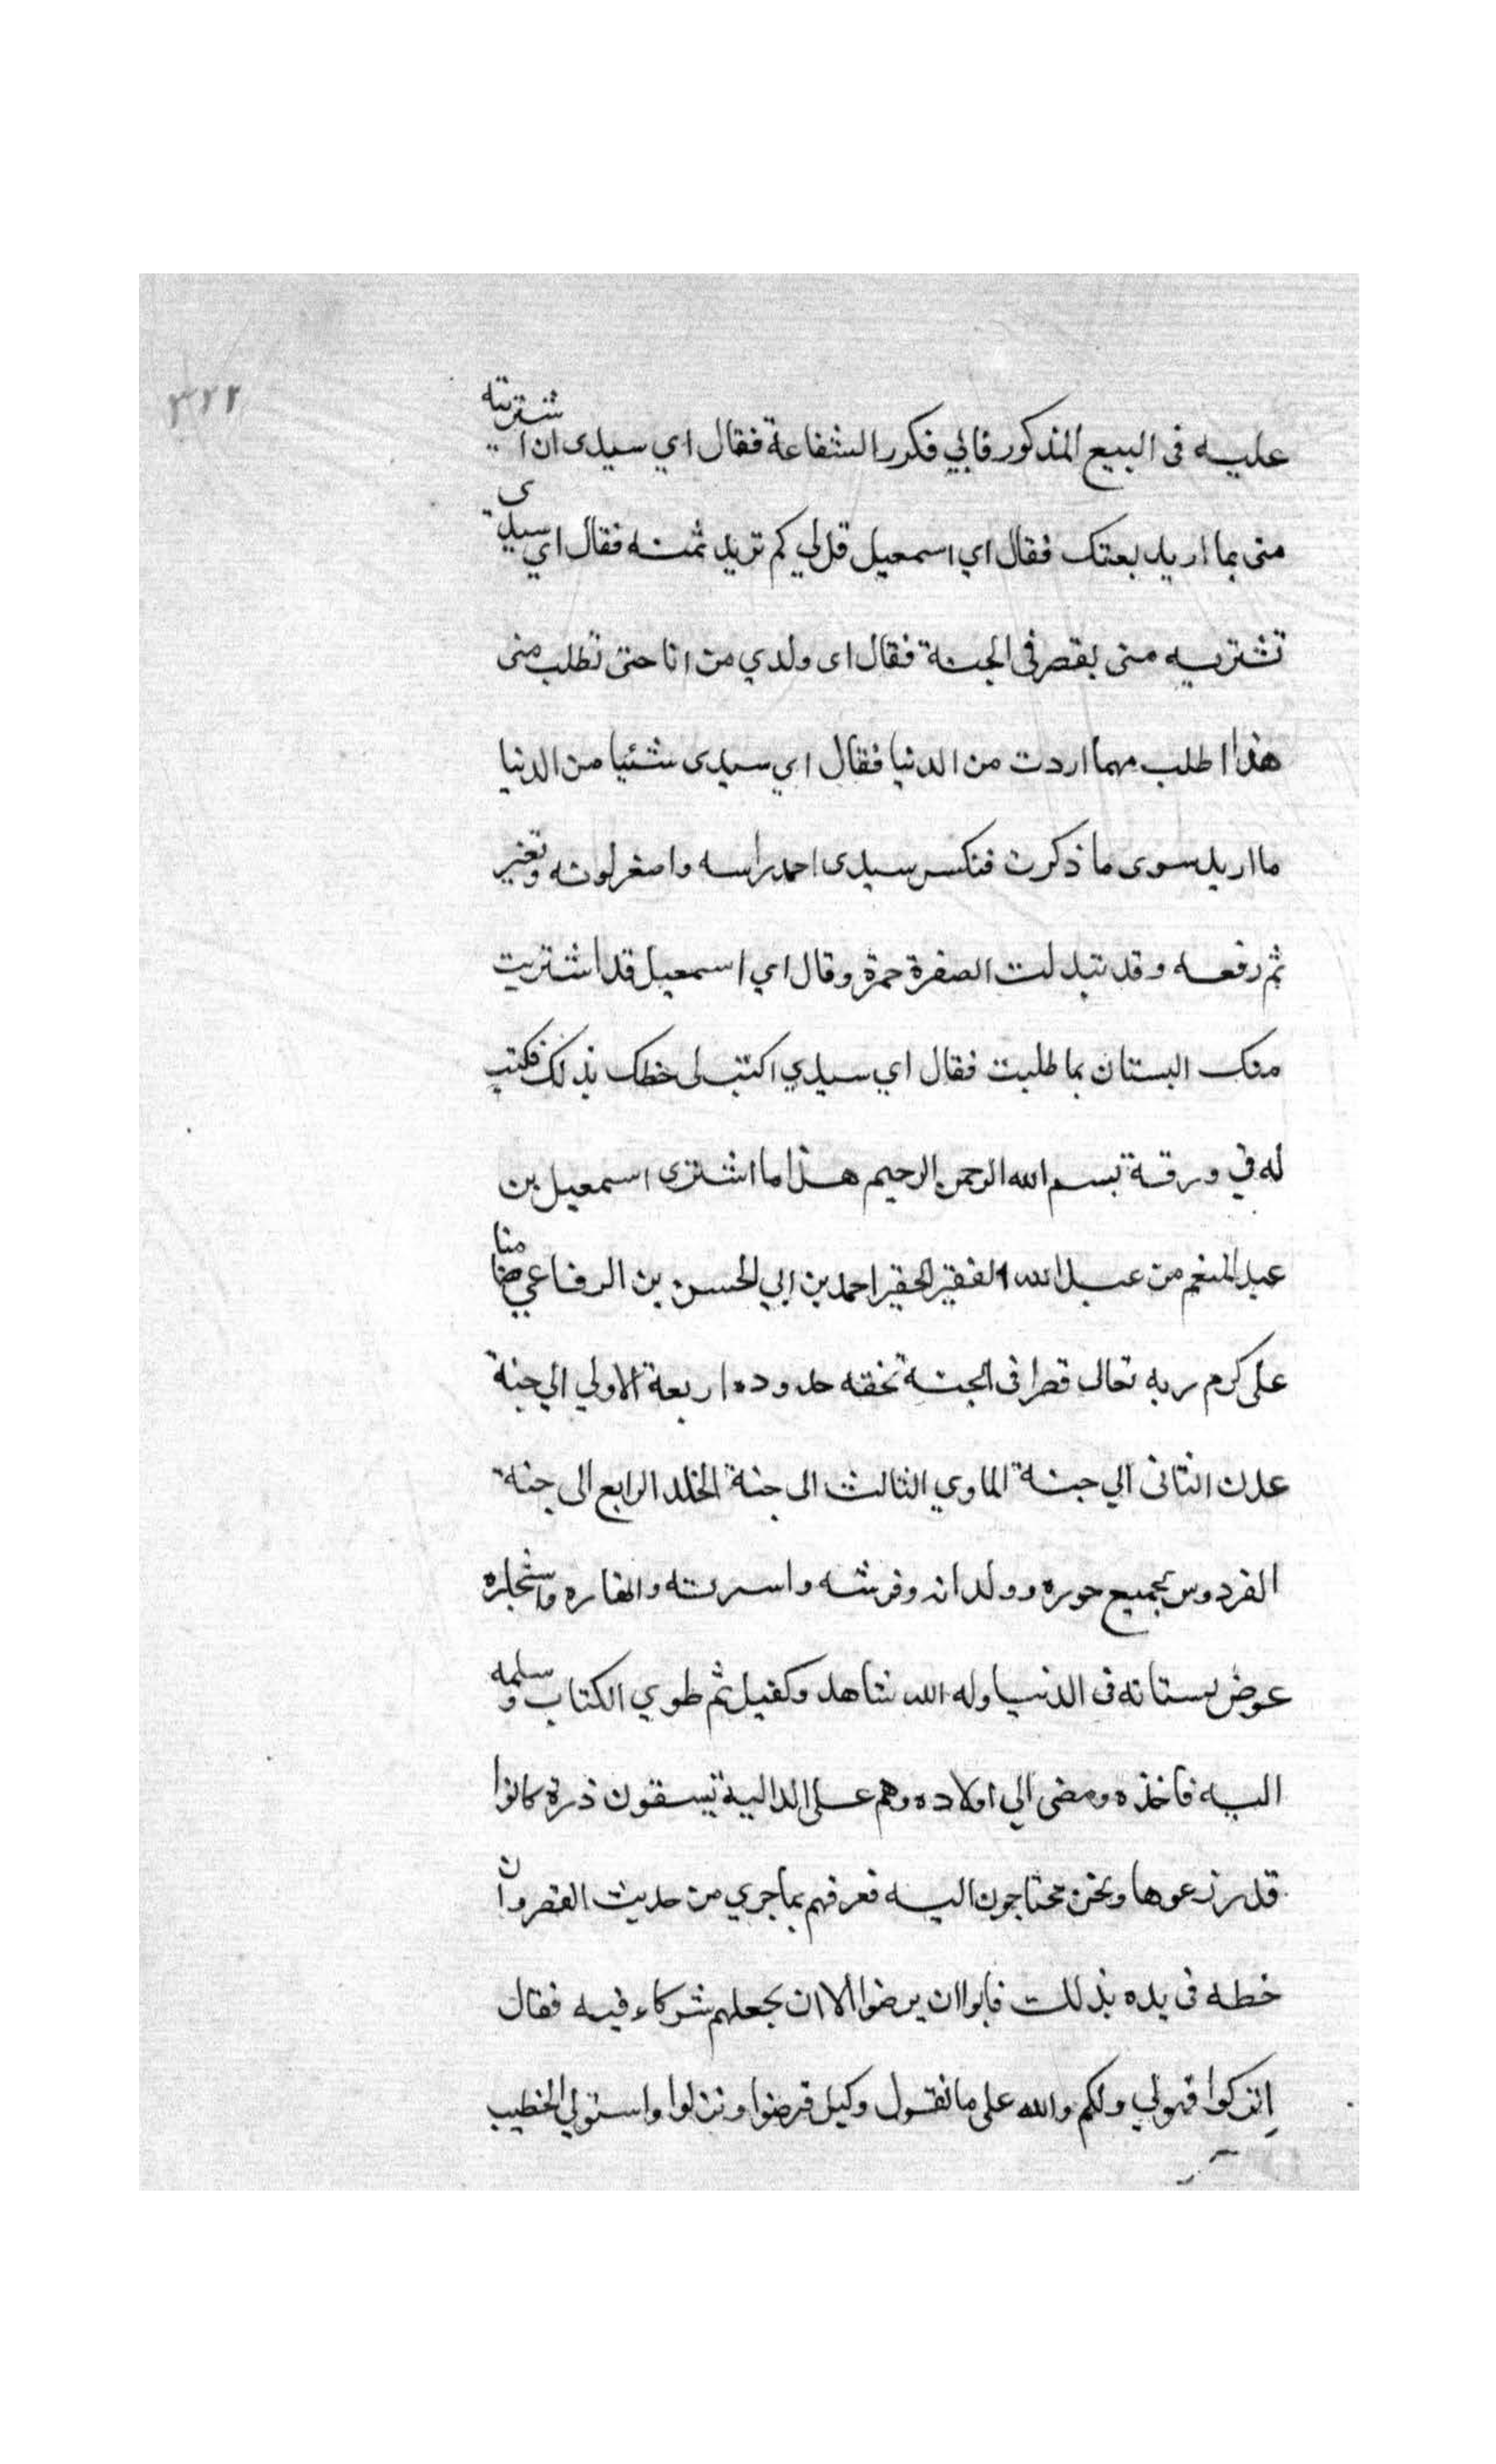 ٣٢٢
عليه فى البيع المذكور فابي فكرر الشفاعة فقال اي سيدى ان اشتريته
منى بما اريد بعتك فقال اي اسمعيل قل لي كم تريد ثمنه فقال اي سيدى
تشتريه منى بقصر فى الجنة فقال اى ولدي من انا حتى تطلب منى
هذا اطلب مهما اردت من الدنيا فقال اي سيدى شئيا من الدنيا
ما اريد سوى ما ذكرت فنكس سيدى احمد راسه واصفر لونه وتغير
ثم رفعه وقد تبدلت الصفرة حمرة وقال اي اسمعيل قد اشتريت
منك البستان بما طلبت فقال اي سيدي اكتب لى خطك بذلك فكتب
له في ورقة بسم الله الرحمن الرحيم هذا ما اشترى اسمعيل بن
عبد المنعم من عبد الله الفقير الحقير احمد بن ابي الحسن بن الرفاعي ضامنا
على كرم ربه تعالى قصرا فى الجنة تحفه حدوده اربعة الاولي الي جنة
عدن الثانى الي جنة الماوي الثالث الى جنة الخلد الرابع الى جنة
الفردوس بجميع حوره وولدانه وفرشه واسرته وانهاره واشجاره
عوض بستانه فى الدنيا وله الله شاهد وكفيل ثم طوي الكتاب وسلمه
اليه فاخذه ومضى الي اولاده وهم على الدالية يسقون ذرة كانوا
قد زرعوها ونحن محتاجون اليه فعرفهم بما جري من حديث القصر وان
خطه فى يده بذلك فابوا ان يرضوا الا ان يجعلهم شركاء فيه فقال
انزكوا فهو لي ولكم والله على ما نقول وكيل فرضوا ونزلوا واستولي الخطيب